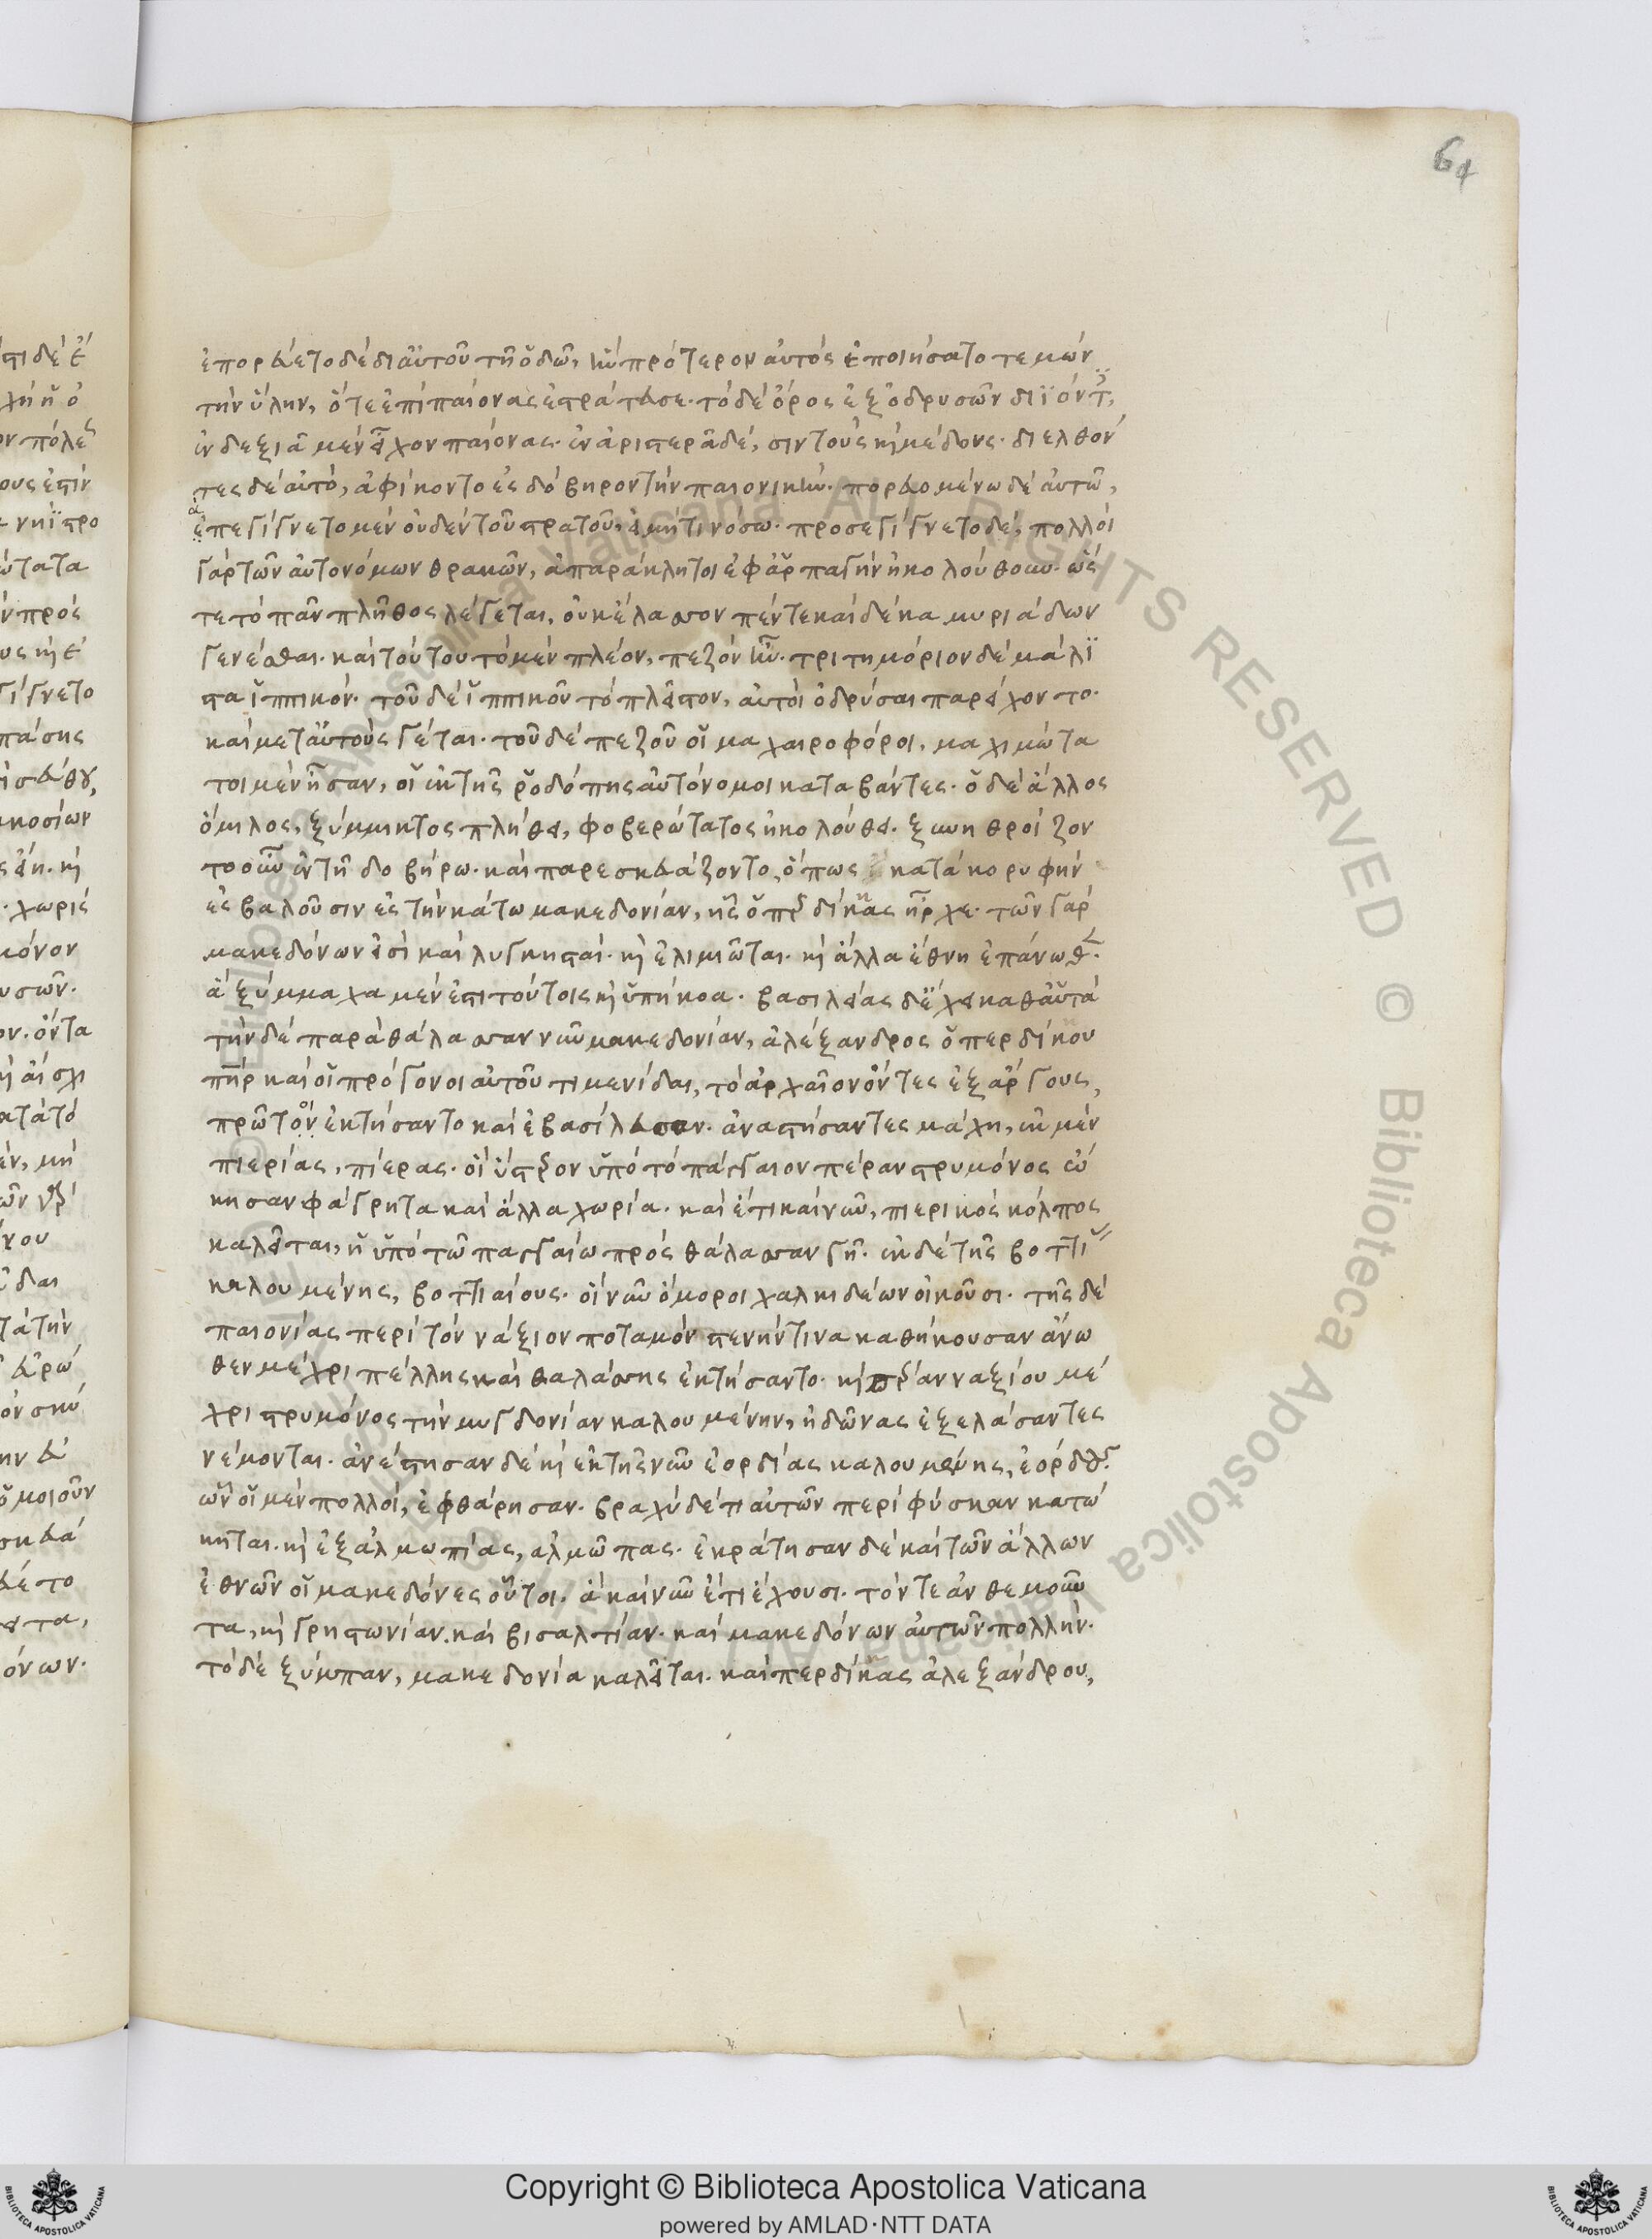 64
ἐπορεύετο δὲ δι' αὐτοῦ τῆ ὁδῶ, ἣν πρότερον αὐτὸς ἐποιήσατο τεμὼν
τὴν ὕλην, ὅτε ἐπὶ παίονας ἐστράτευσε· τὸ δὲ ὄρος ἐξ ὀδρυσῶν διϊόντ
ἐν δεξιᾶ μὲν εἶχον παίονας· ἐν ἀριστερᾶ δὲ, σιντοὺς καὶ μέδους· διελθόν
τες δὲ αὐτὸ, ἀφίκοντο ἐς δόβηρον τὴν παιονικήν· πορευομένω δὲ αὐτῶ,
ἐπεγίγνετο μὲν οὐδὲν τοῦ στρατοῦ, εἰ μή τι νόσω· προσεγίγνετο δέ, πολλοὶ
γὰρ τῶν αὐτονόμων θρακῶν, ἀπαράκλητοι ἐφ' ἁρπαγὴν ἠκολούθουν· ὥς
τε τὸ πᾶν πλῆθος λέγεται, οὐκ ἔλασσον πέντε καὶ δέκα μυριάδων
γενέσθαι· καὶ τούτου τὸ μὲν πλέον, πεζὸν ἦν· τριτημόριον δὲ μάλι
στα ἱππικόν· τοῦ δὲ ἱππικοῦ τὸ πλεῖστον, αὐτοὶ ὀδρύσαι παρείχοντο·
καὶ μετ' αὐτοὺς γέται· τοῦ δὲ πεζοῦ οἱ μαχαιροφόροι, μαχιμώτα
τοι μὲν ἦσαν, οἱ ἐκ τῆς ῥοδόπης αὐτόνομοι καταβάντες· ὁ δὲ ἄλλος
ὅμιλος, ξύμμικτος πλήθει, φοβερώτατος ἠκολούθει· ξυνηθροίζον
το οὖν ἐν τῆ δοβήρω· καὶ παρεσκευάζοντο, ὅπως κατὰ κορυφὴν
ἐσβαλοῦσιν ἐς τὴν κάτω μακεδονίαν, ἧς ὁ περδίκκας ἦρχε· τῶν γὰρ
μακεδόνων εἰσὶ καὶ λυγκησταὶ· καὶ ἐλιμιῶται· καὶ ἄλλα ἔθνη ἐπάνωθεν·
ἃ ξύμμαχα μέν ἐστι τούτοις καὶ ὑπήκοα· βασιλείας δ' ἔχει καθ' αὑτά
τὴν δὲ παρὰ θάλασσαν νῦν μακεδονίαν, ἀλέξανδρος ὁ περδίκου
πῆρ καὶ οἱ πρόγονοι αὐτοῦ τιμενίδαι, τὸ ἀρχαῖον ὄντες ἐξ ἄργους,
πρῶτον ἐκτήσαντο καὶ ἐβασίλευσαν· ἀναστήσαντες μάχη, ἐκ μὲν
πιερίας, πίερας· οἳ ὕστερον ὑπὸ τὸ πάγγαιον πέραν στρυμόνος ὤ
κησαν φάγρητα καὶ ἄλλα χωρία· καὶ ἔτι καὶ νῦν, πιερικὸς κόλπος
καλεῖται, ἡ ὑπὸ τῶ παγγαίω πρὸς θάλασσαν γῆ· ἐκ δὲ τῆς βοττι
καλουμένης, βοττιαίους· οἳ νῦν ὅμοροι χαλκιδέων οἰκοῦσι· τῆς δὲ
παιονίας περὶ τὸν νάξιον ποταμὸν στενήν τινα καθήκουσαν ἄνω
θεν μέχρι πέλλης καὶ θαλάσσης ἐκτήσαντο· καὶ πέραν ναξίου μέ
χρι στρυμόνος τὴν μυγδονίαν καλουμένην, ἠδῶνας ἐξελάσαντες
νέμονται· ἀνέστησαν δὲ καὶ ἐκ τῆς νῦν ἐορδίας καλουμένης, ἐορδούς·
ὧν οἱ μὲν πολλοὶ, ἐφθάρησαν· βραχὺ δέ τι αὐτῶν περὶ φύσκαν κατώ
κηται· καὶ ἐξ ἀλμωπίας, ἀλμῶπας· ἐκράτησαν δὲ καὶ τῶν ἄλλων
ἐθνῶν οἱ μακεδόνες οὗτοι· ἃ καὶ νῦν ἔτι ἔχουσι· τόν τε ἀνθεμοῦν
τα, καὶ γρηστωνίαν· καὶ βισαλτίαν· καὶ μακεδόνων αὐτῶν πολλήν·
τὸ δὲ ξύμπαν, μακεδονία καλεῖται· καὶ περδίκκας ἀλεξάνδρου,
Copyright © Biblioteca Apostolica Vaticana
powered by AMLAD·NTT DATA